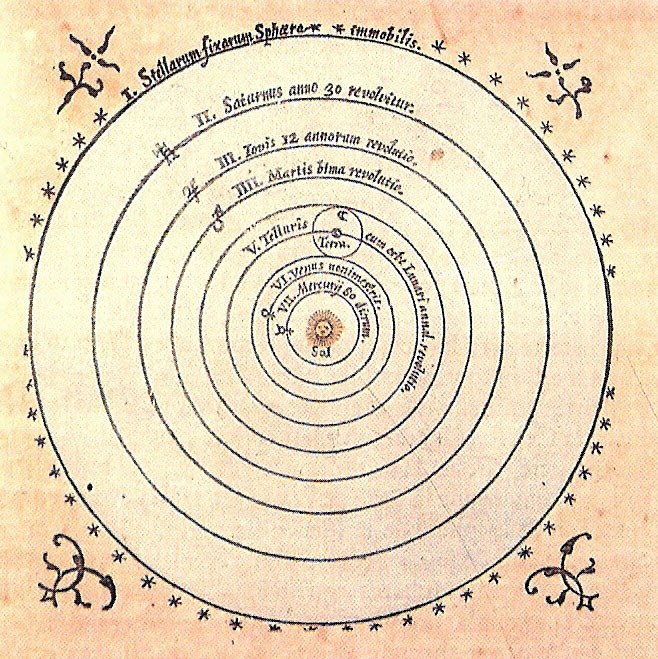 I. Stellarum fixarum Sphæra immobilis.
II. Saturnus anno 30 revolvitur.
III. Iovis 12 annorum revolutio.
IIII. Martis bima revolutio.
V. Telluris
Terra.
cum orbe Lunari annua revolutio.
VI. Venus nonimestris.
VII. Mercurij 80 dierum.
Sol